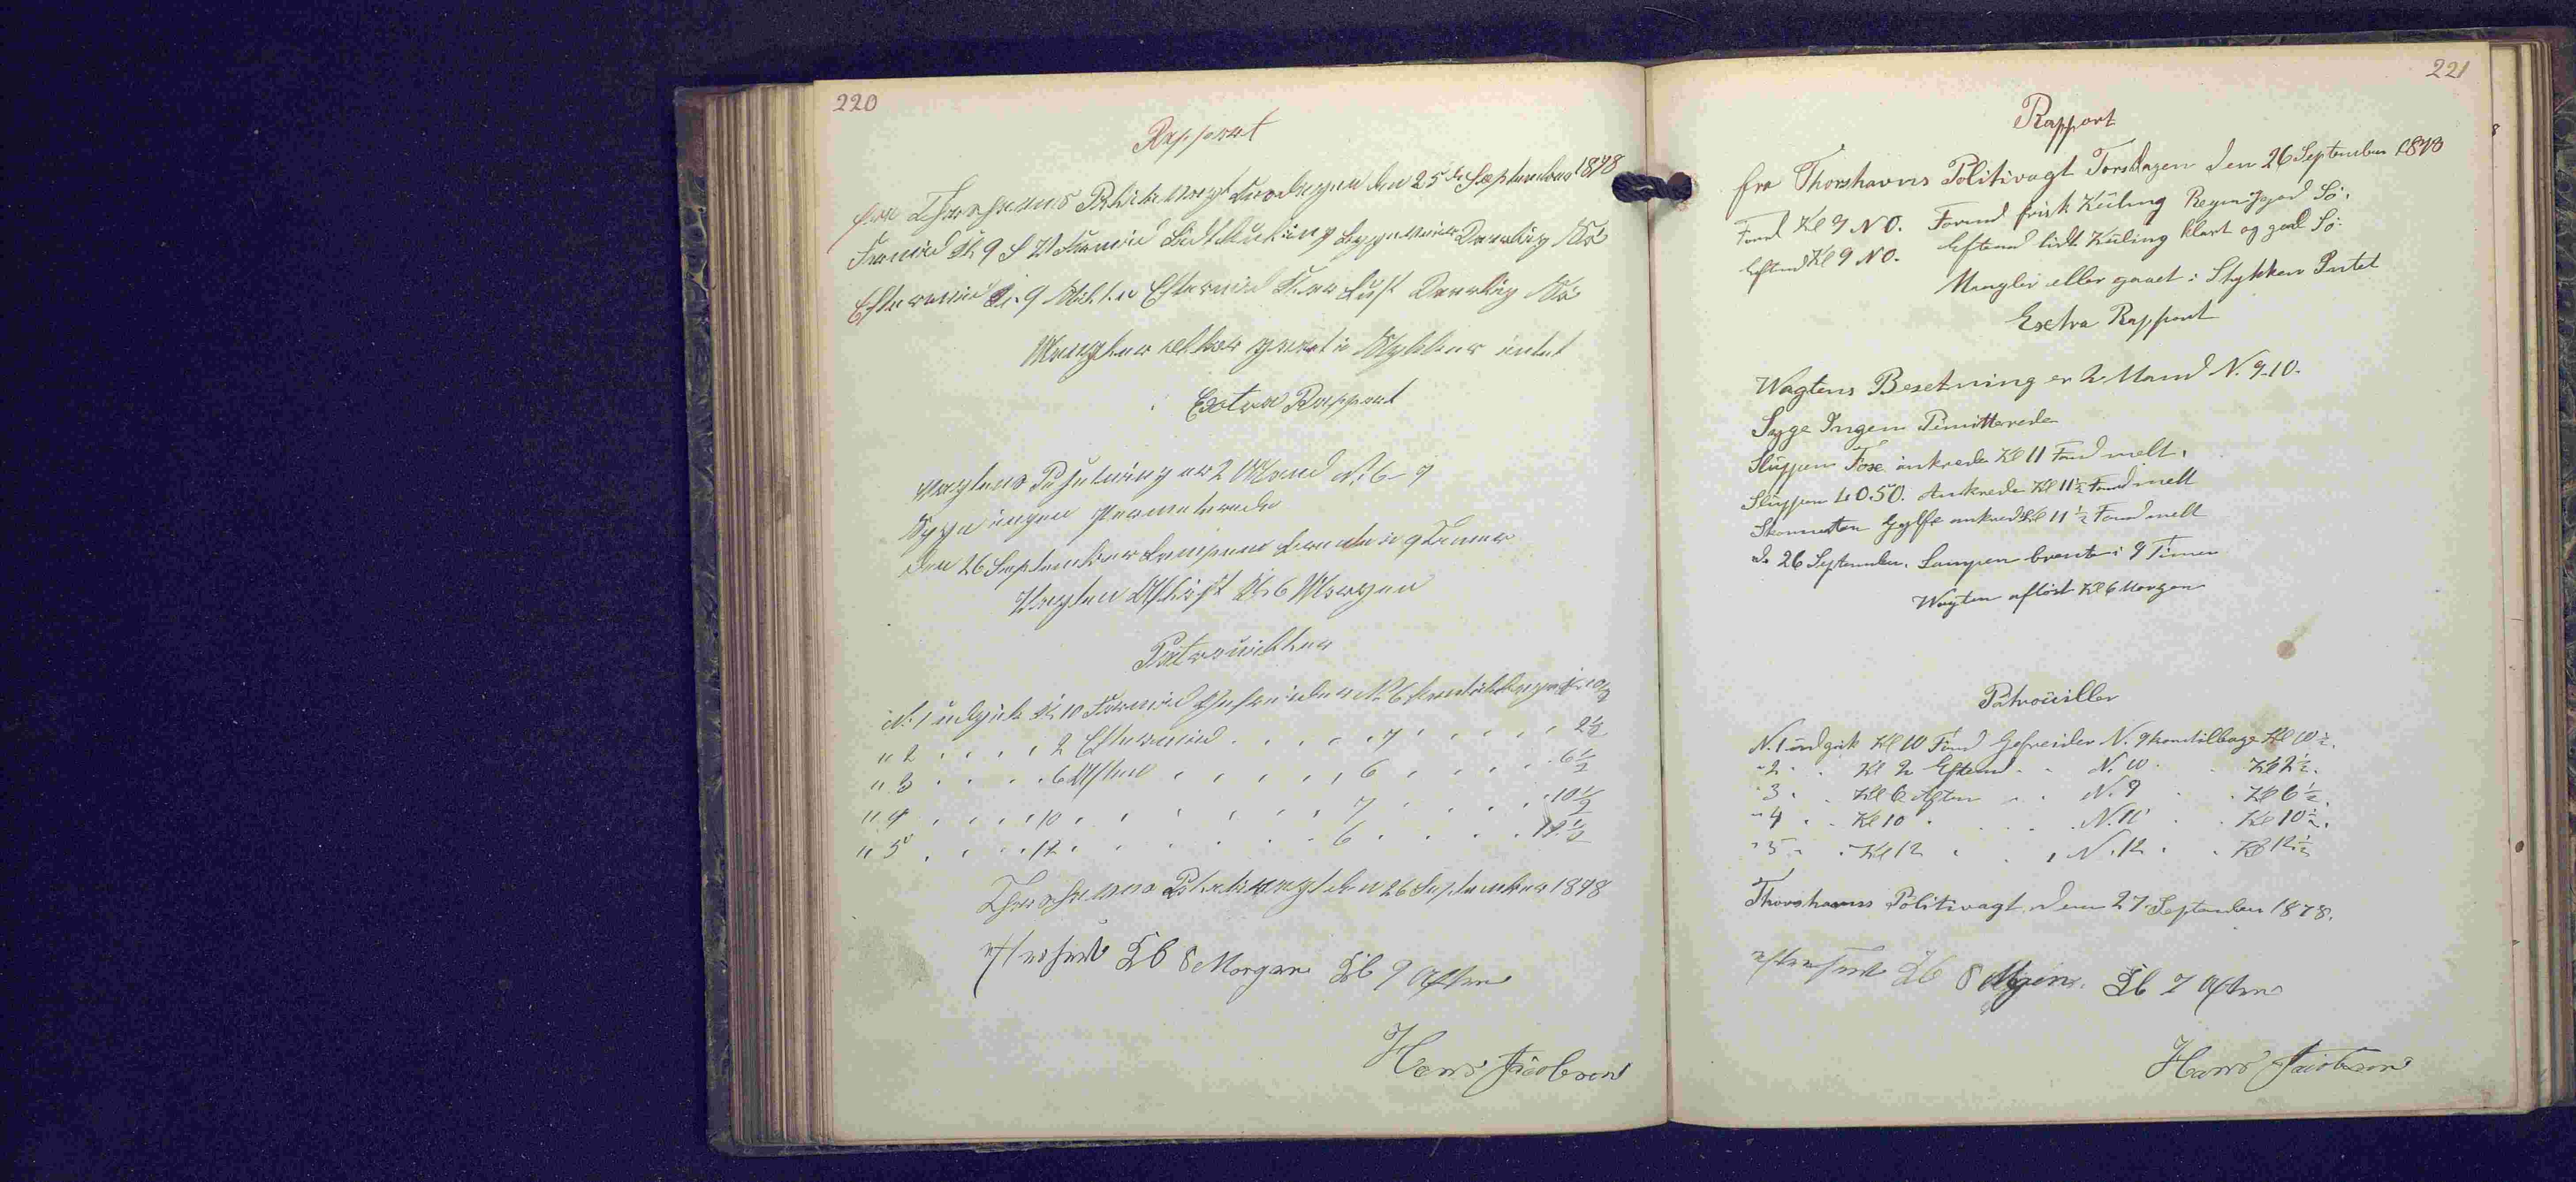 220
Rapport
fra Thorshavns Politivagt Onsdagen den 25de September 1878
Formid Kl 9 S V Formid Lidt Kuling Daarlig Sö
Eftermid Kl 9 Stille Eftermid Klar Luft Daarlig Sö
Mangler eller gaaet i Stykker intet
Extra Rapport
Vagtens Besetning er 2 Mand No 6-7
Syge ingen Permeterede
Den 26 September Lampen brente i 9 Timer
Vagten Aflöst Kl 6 Morgen
Patrouiller
No 1 udgik Kl 10 Formid Gefreider No 6 kom tilbage Kl 10½
" 2 " " " 2 Eftermid " " 7 " " " 2½
" 3 " " " 6 Aften " " 6 " " " 6½
" 4 " " " 10 " " " 7 " " " 10½
" 5 " " " 12 " " " 6 " " " 12½
Thorshavns Politivagt den 26 September 1878
efterseet Kl 8 Morgen Kl 9 Aften
Hans Jacobsen
221
Rapport
fra Thorshavns Politivagt Torsdagen den 26 September 1878
Formd Kl 9 NO. Formd frisk Küling Regn god Sö.
Eftmd Kl 9 NO. Eftermd lidt Küling klart og god Sö.
Mangler eller gaaet i Stykker Intet
Exstra Rapport
Wagtens Besetning er 2 Mand N. 9-10.
Syge Ingen Pemitterede
Sluppen Fox ankrede Kl 11 Fomd melt.
Sluppen LO.50. Ankrede Kl 11½ Fomd melt
Skonnerten Gylfe ankred Kl 11½ Fomd melt
d. 26 September. Lampen brente i 9 Timer
Wagten aflöst Kl 6 Morgen
Patroüiller
N. 1 üdgik Kl 10 Fmd Gefreider N. 9 kom tilbage Kl 10½.
" 2 " " Kl 2 Eftemd " " N. 10 " " Kl 2½.
" 3 " " Kl 6 Aften " " N. 9 " " Kl 6½.
" 4 " " Kl 10 " " N. 10 " " Kl 10½.
" 5 " " Kl 12 " " N. 12 " " Kl 12½
Thorshavns Politivagt. den 27 September 1878.
efterseet Kl 8 Mgen. Kl 7 Aften
Hans Jacobsen